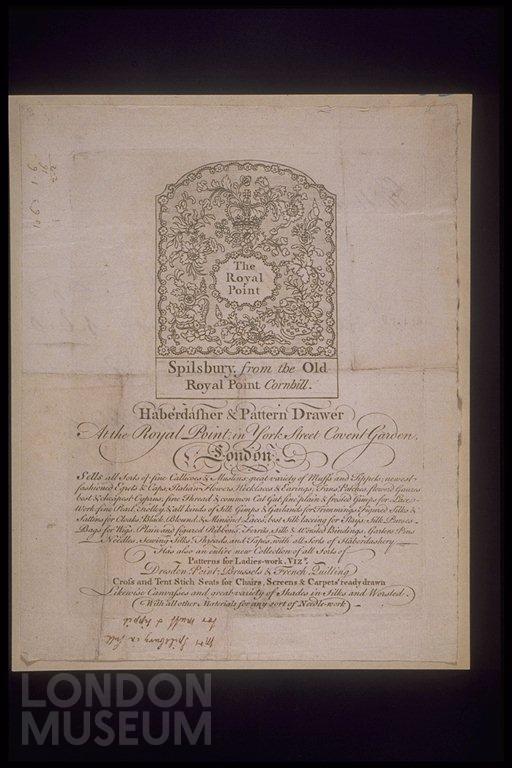 The
Royal
Point
Spilsbury, from the Old
Royal Point Cornhill.
Haberdasher & Pattern Drawer
At the Royal Point, in York Street Covent Garden,
London.
Sells all Sorts of fine Callicoes & Muslins, great variety of Muffs and Tippets; newest
fashioned Egrets & Caps, Italian Flowers, Necklaces & Earings, Fans, Patches, flower'd Gauzes
best & cheapest Capuchins, fine Thread & common Cat Gut, fine plain & frosted Gimps for Lace
Work, fine Pearl, & all kinds of Silk Gimps & Garlands for Trimmings, Figured Silks &
Sattins for Cloaks, Black, Blound, & Minionet Laces, best Silk laceing for Stays, Silk Purses
Bags for Wigs, Plain and figured Ribbons, Ferrits, silk & Worsted Bindings, Garters, Pins
Needles, Sewing Silks, Threads, and Tapes, with all Sorts of Haberdashery.
Has also an entire new Collection of all Sorts of
Patterns for Ladies-work, Vizt.
Dresden Point, Brussels & French Quilting
Cross and Tent Stich Seats for Chairs, Screens & Carpets ready drawn
Likewise Canvasses and great variety of Shades in Silks and Worsted.
(With all other Materials for any sort of Needle-work)
Mrs Spilsbury in full
for muff & tippit
LONDON
MUSEUM